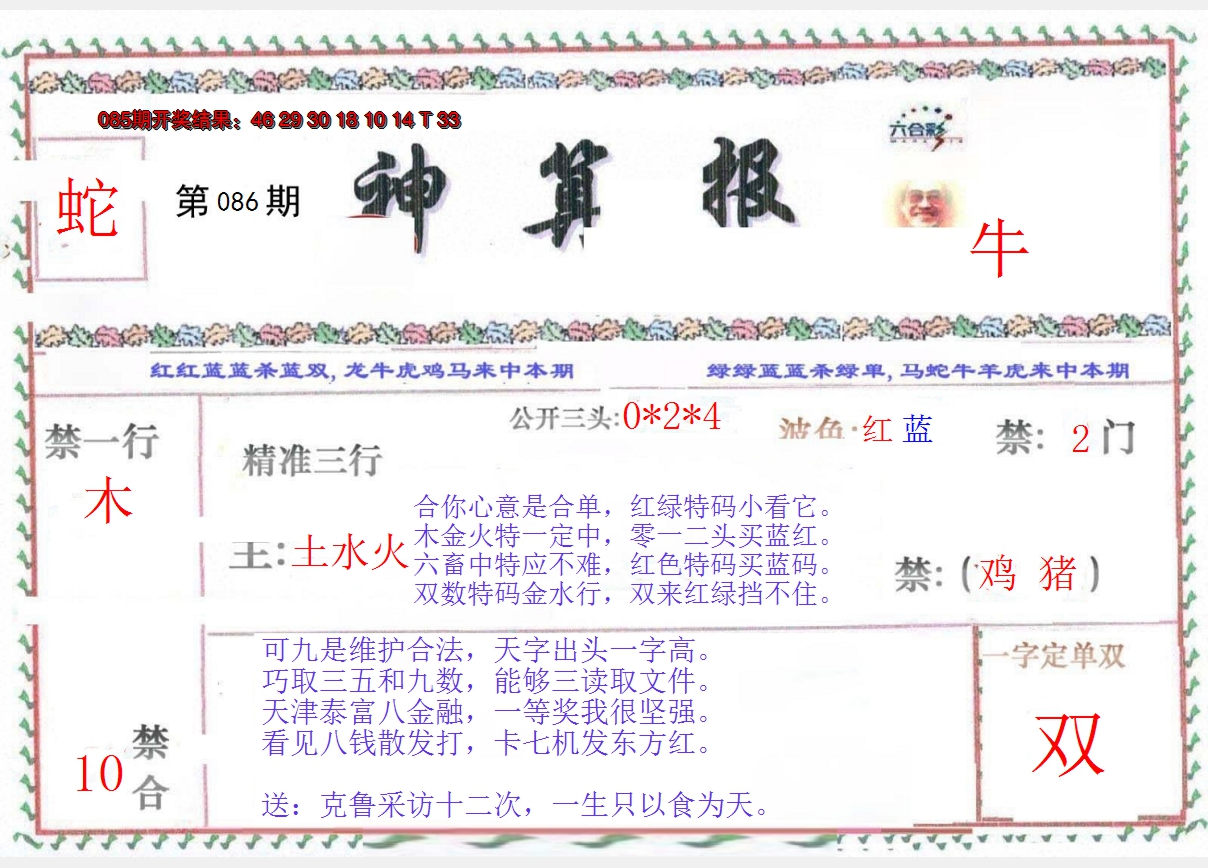 085期开奖结果：46 29 30 18 10 14 T 33
六合彩
蛇
第086期
神算报
牛
红红蓝蓝杀蓝双,龙牛虎鸡马来中本期
绿绿蓝蓝杀绿单,马蛇牛羊虎来中本期
公开三头:0*2*4
波色:红 蓝
禁: 2门
禁一行
木
精准三行
合你心意是合单，红绿特码小看它。
木金火特一定中，零一二头买蓝红。
主:土水火
六畜中特应不难，红色特码买蓝码。
双数特码金水行，双来红绿挡不住。
禁:(鸡 猪)
可九是维护合法，天字出头一字高。
巧取三五和九数，能够三读取文件。
天津泰富八金融，一等奖我很坚强。
看见八钱散发打，卡七机发东方红。
送：克鲁采访十二次，一生只以食为天。
一字定单双
双
10
禁合